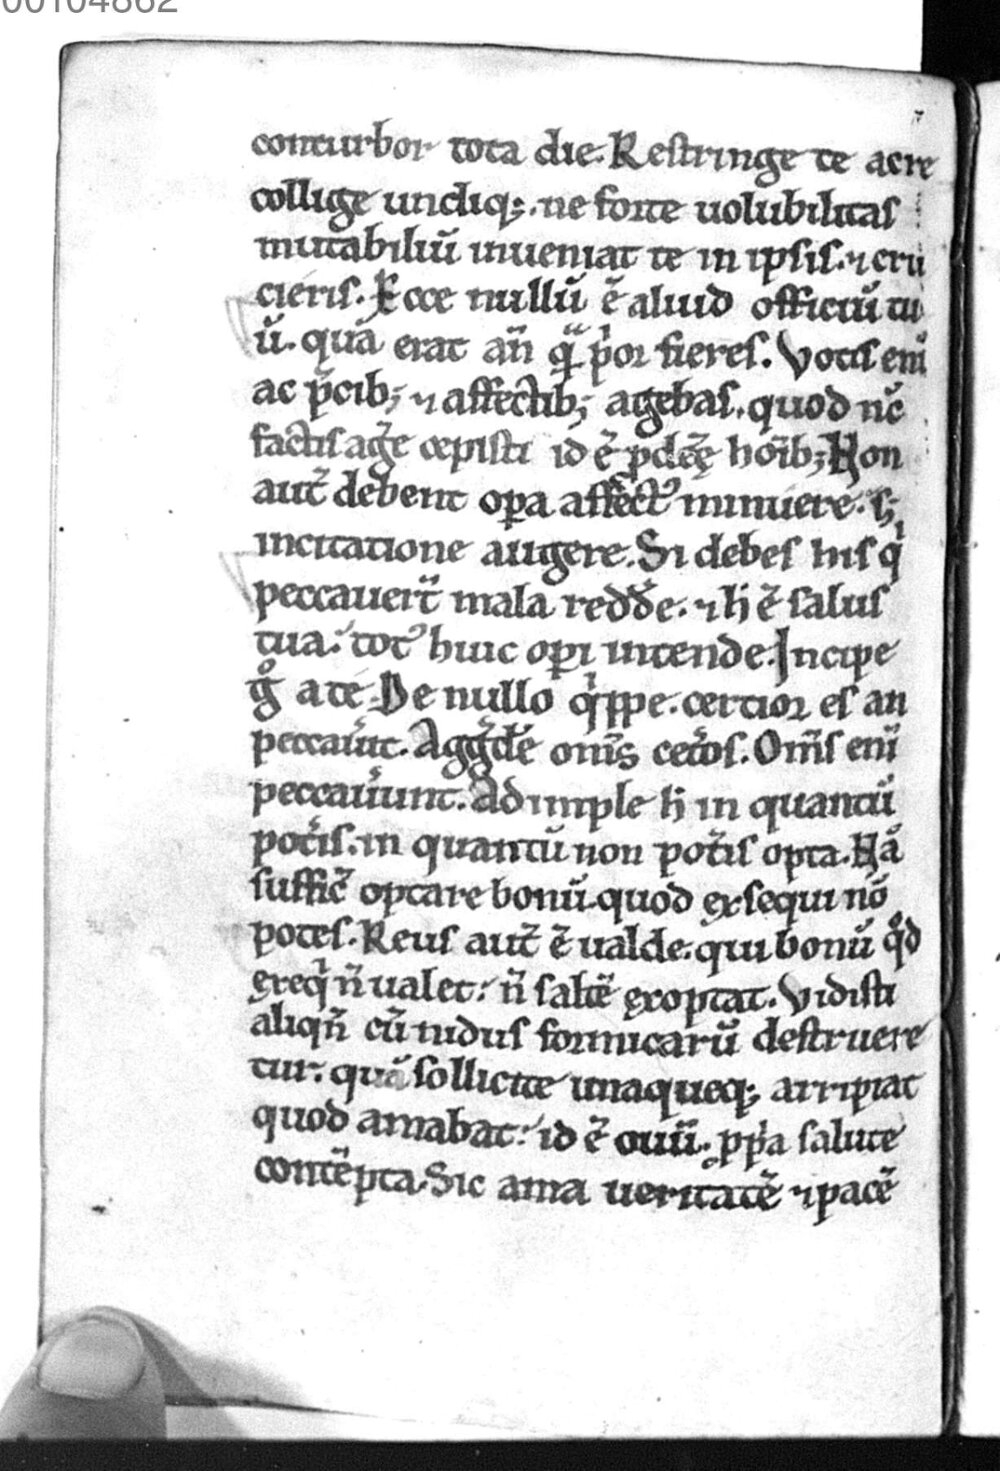 00104862
conturbor tota die. Restringe te acre
collige undiq;. ne forte uolubilitas
mutabiliū inueniat te in ipsis. ⁊ cru
cieris. Ecce nullū ē aliud officiū tu
ū. quā erat an̄ qͣ̄ pͥor fieres. Votis eni̅
ac p̄cib; ⁊ affectib; agebas. quod nc̄
factis ag̃e cepisti id ē p̱dcēę hoīb; Non
aut̃ debent op̱a affectꝰ minuere. s;
incitatione augere. Si debes his qͥ
peccauert̄ mala redd̃e. ⁊ h̄ ē salus
tua. totꝰ huic op̱i intende. Incipe
gͦ a te. De nullo qͥppe. certior es an
peccauͥit. Aggͤde om̄s cet̃os. Om̄s eni̅
peccauͥunt. Ad imple h̄ in quantū
pot̃is. in quantū non pot̃is opta. Nā
suffic̃ optare bonū. quod exsequi nō
potes. Reus aut̃ ē ualde. qui bonū qͦd
exeqͥ n̄ ualet. n̄ saltē exoptat. Vidisti
aliqn̄ cū nidus formicarū destruere
tur. quā sollicite unaqueq; arripiat
quod amabat. id ē ouū. ꝓpͥa salute
contēpta. Sic ama ueritatē ⁊ pacē